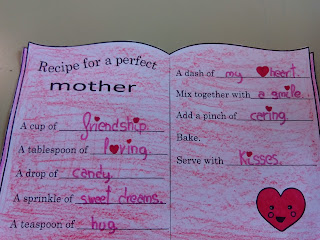 Recipe for a perfect
mother
A cup of friendship.
A tablespoon of loving
A drop of candy.
A sprinkle of sweet dreams.
A teaspoon of hug.
A dash of my heart.
Mix together with a smile.
Add a pinch of caring.
Bake.
Serve with kisses.